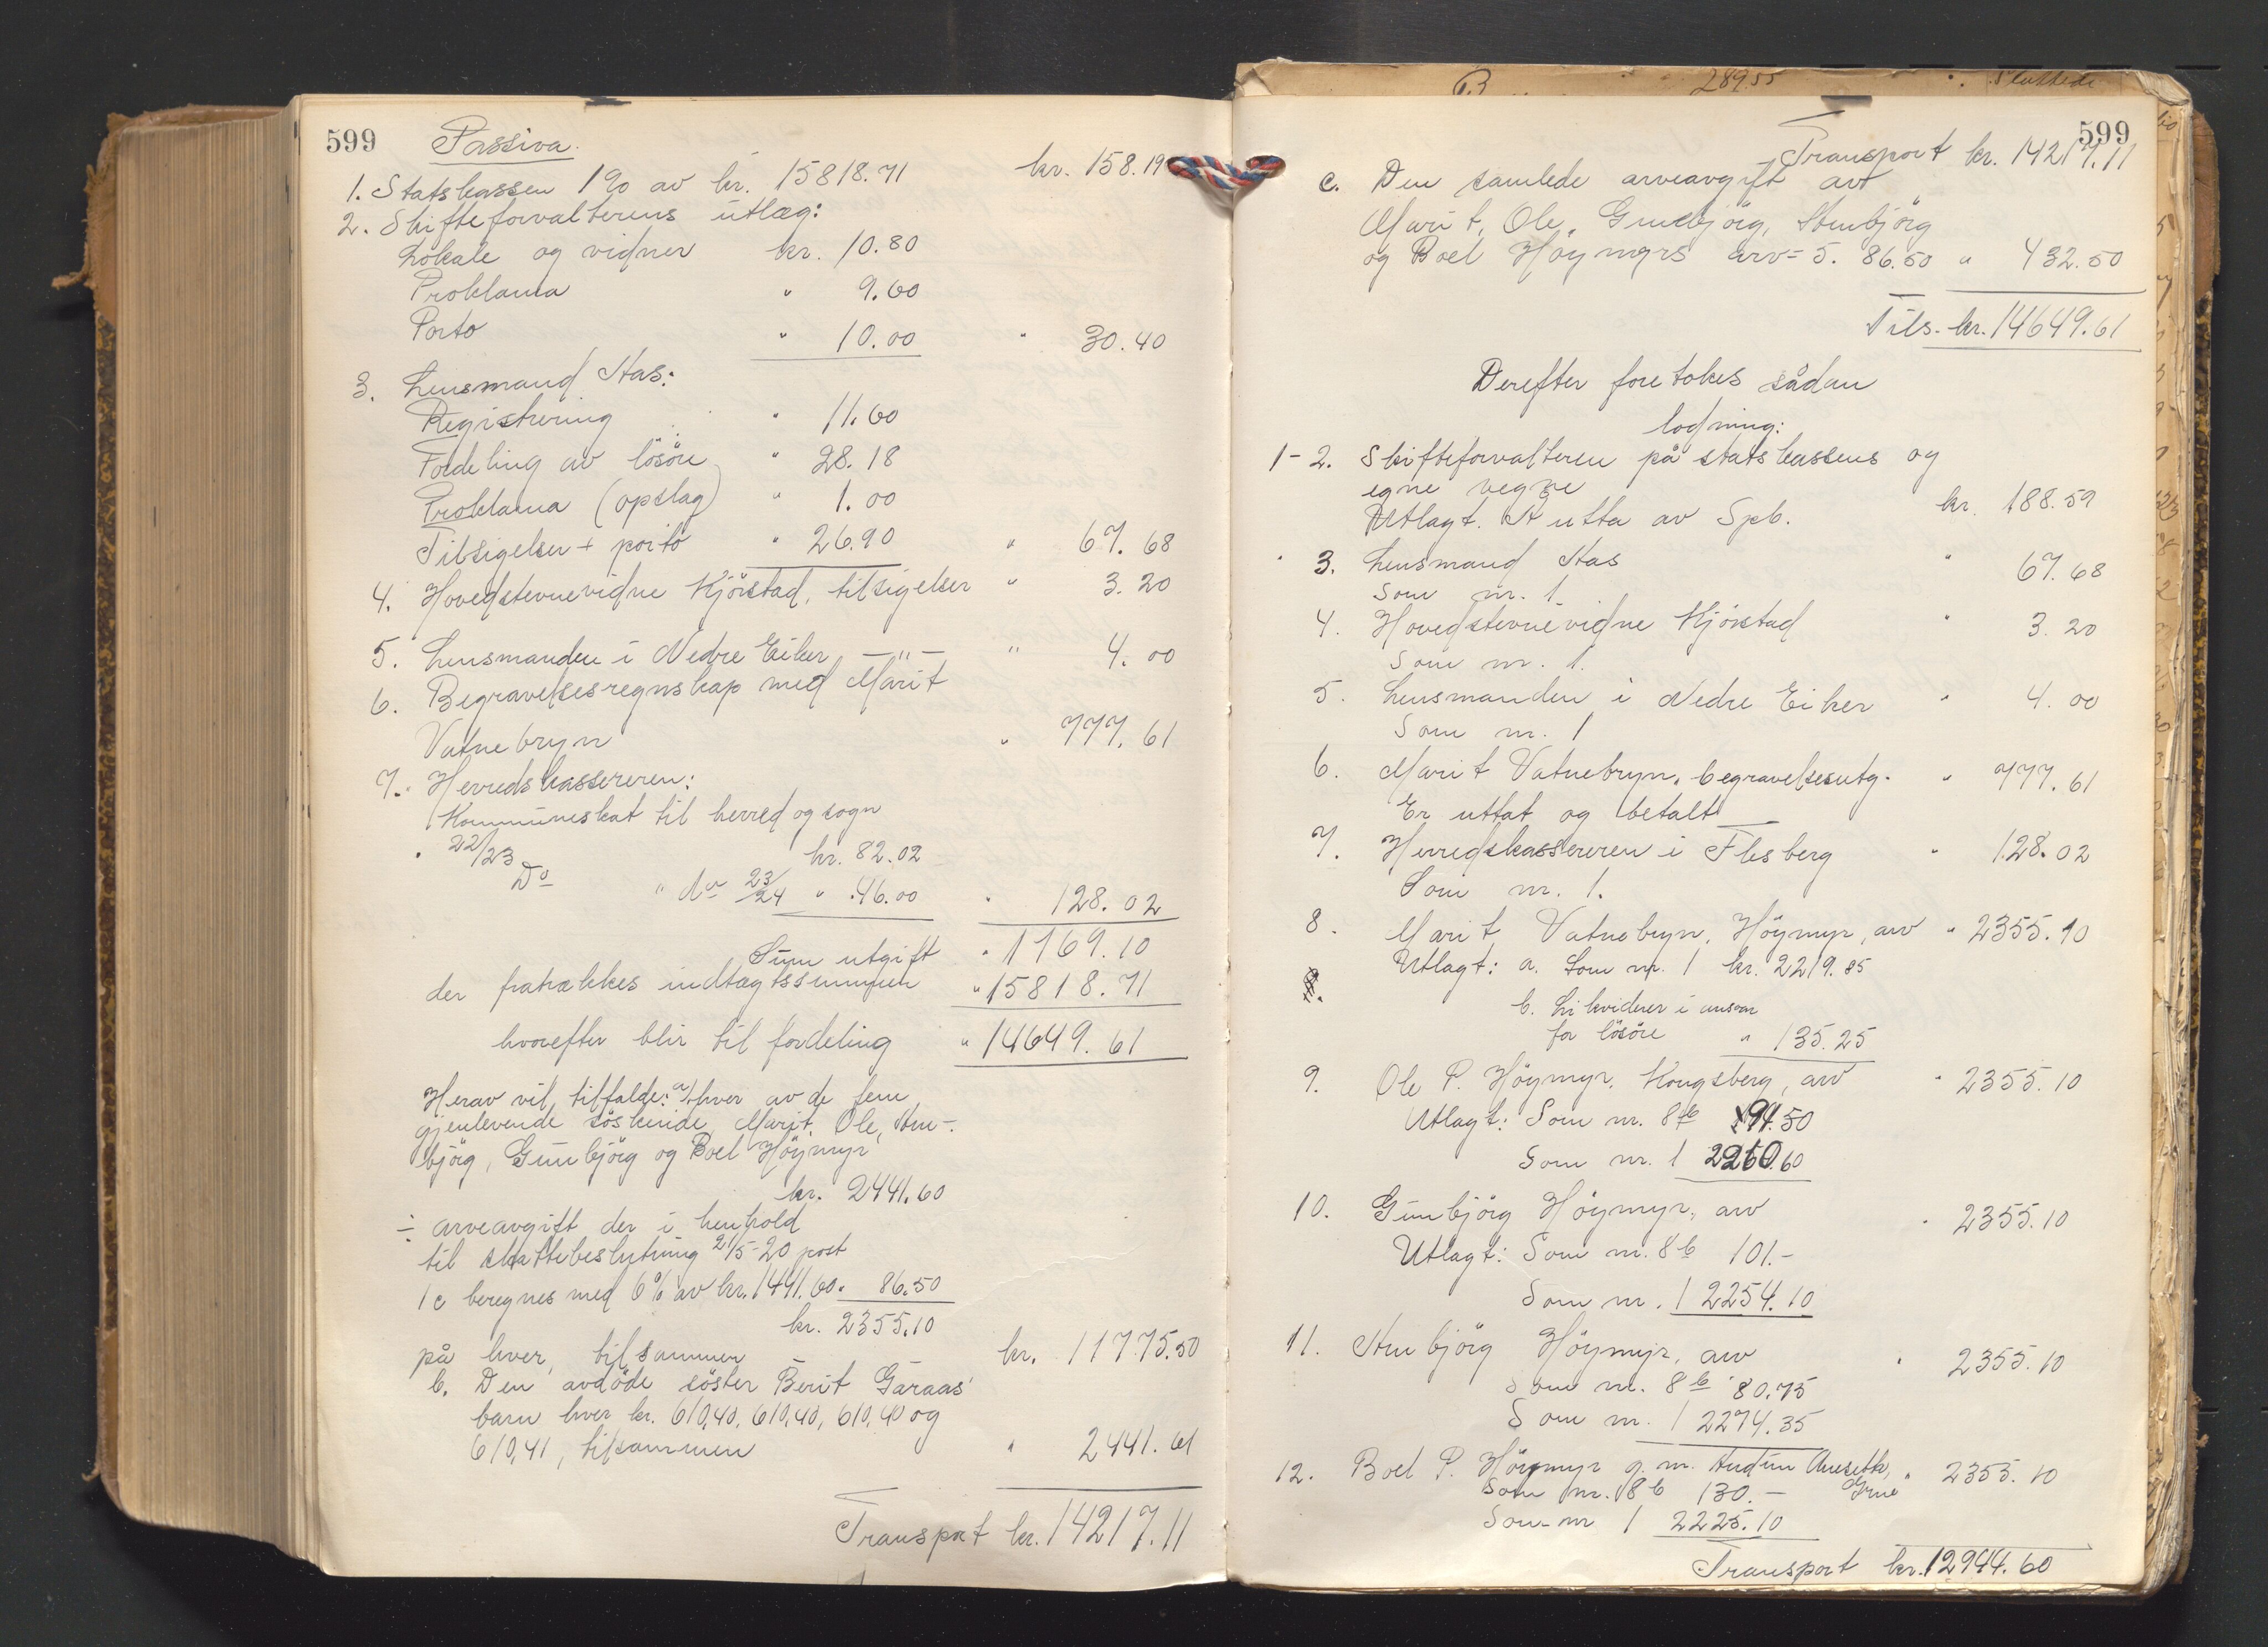 599 Passiva.
1. Statskassen 1% av kr. 15818.71 kr. 158.19
2. Skifteforvalterens utlæg:
Lokale og vidner kr. 10.80
Proklama " 9.60
Porto " 10.00 " 30.40
3. Lensmand Aas:
Registrering " 11.60
Fordeling av lösöre " 28.18
Proklama (opslag) " 1.00
Tilsigelser + porto " 26.90 " 67.68
4. Hovedstevnevidne Kjörstad, tilsigelser " 3.20
5. Lensmanden i Nedre Eiker —"— " 4.00
6. Begravelsesregnskap med Marit
Vatnebryn " 777.61
7. Herredskassereren:
Kommuneskat til herred og sogn
22/23 kr. 82.02
Do " do 23/24 " 46.00 " 128.02
Sum utgift " 1169.10
der fratrækkes indtægtssummen " 15818.71
hvorefter blir til fordeling " 14649.61
Herav vil tilfalde: a/ hver av de fem
gjenlevende söskende, Marit, Ole, Am-
björg, Gunbjörg og Boel Höymyr
kr. 2441.60
÷ arveavgift der i henhold
til skattebeslutning 21/5-20 post
1 c beregnes med 6% av kr. 1441.60 " 86.50
kr. 2355.10
på hver, tilsammen kr. 11775.50
b. Den avdöde söster Berit Garaas'
barn hver kr. 610,40, 610,40, 610,40 og
610,41, tilsammen " 2441.61
Transport kr. 14217.11
289.55
599
Transport kr. 14217.11
c. Den samlede arveavgift av
Marit, Ole, Gunbjörg, Ambjörg
og Boel Höymyrs arv = 5. 86.50 " 432.50
Tils. kr. 14649.61
Derefter foretokes sådan
lodning:
1-2. Skifteforvalteren på statskassens og
egne vegne kr. 188.59
Utlagt. At utta av Spb.
3. Lensmand Aas " 67.68
Som nr. 1
4. Hovedstevnevidne Kjörstad " 3.20
Som nr. 1.
5. Lensmanden i Nedre Eiker " 4.00
Som nr. 1
6. Marit Vatnebryn, begravelsesutg. " 777.61
Er uttat og betalt
7. Herredskassereren i Flesberg " 128.02
Som nr. 1.
8. Marit Vatnebryn, Höymyr, arv " 2355.10
Utlagt: a. Som nr. 1 kr. 2219.85
b. Likviderer i ansvar
for lösöre " 135.25
9. Ole P. Höymyr, Kongsberg, arv " 2355.10
Utlagt: Som nr. 8 b 94.50
Som nr. 1 2260.60
10. Gunbjörg Höymyr, arv " 2355.10
Utlagt: Som nr. 8 b 101.-
Som nr. 1 2254.10
11. Ambjörg Höymyr, arv " 2355.10
Som nr. 8 b 80.75
Som nr. 1 2274.35
12. Boel P. Höymyr g. m. Audun " 2355.10
Som nr. 8 b 130.-
Som nr 1 2225.10
Transport kr. 12944.60